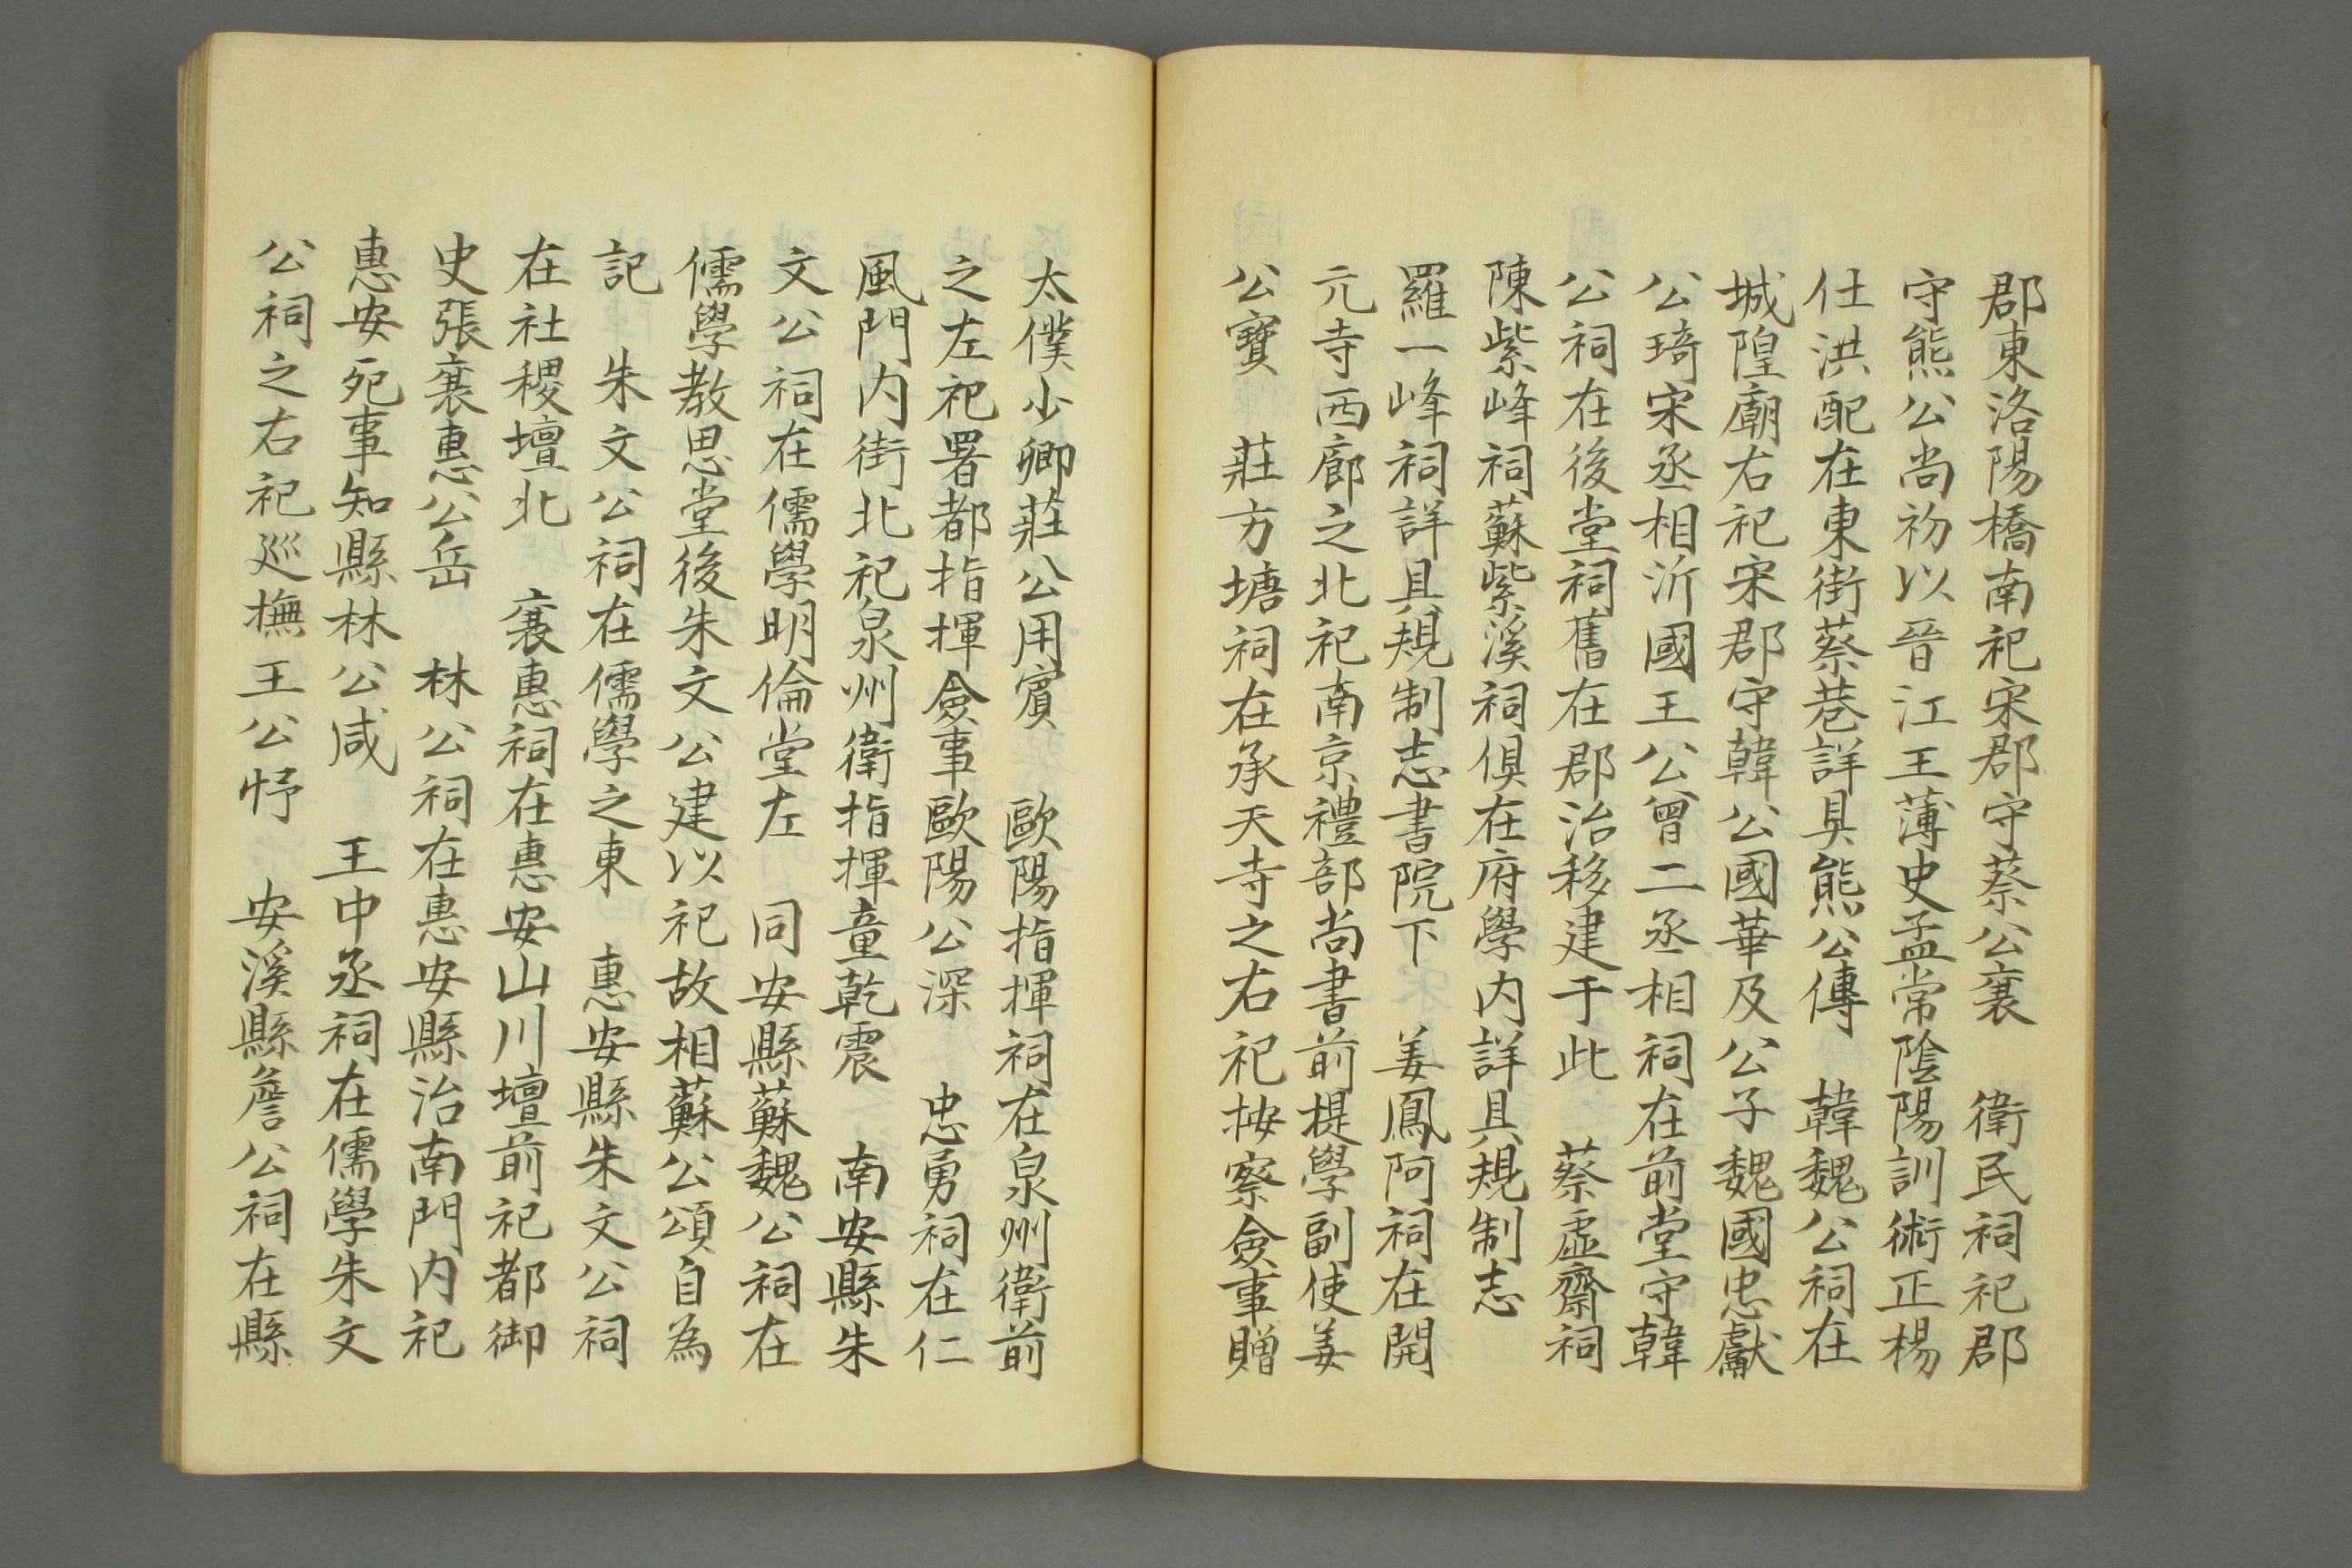 郡東洛陽橋南祀宋郡守蔡公襄　衛民祠祀郡
守熊公尚初以晉江王薄史孟常陰陽訓術正楊
仕洪配在東街蔡巷詳具熊公傳　韓魏公祠在
城隍廟右祀宋郡守韓公國華及公子魏國忠獻
公琦宋丞相沂國王公曾二丞相祠在前堂守韓
公祠在後堂祠舊在郡治移建于此　蔡虛齋祠
陳紫峰祠蘇紫溪祠俱在府學内詳具規制志
羅一峰祠詳具規制志書院下　姜鳳阿祠在開
元寺西廊之北祀南京禮部尚書前提學副使姜
公寶　莊方塘祠在承天寺之右祀按察僉事贈
太僕少卿莊公用賓　歐陽指揮祠在泉州衛前
之左祀署都指揮僉事歐陽公深　忠勇祠在仁
風門内街北祀泉州衛指揮童乾震　南安縣朱
文公祠在儒學明倫堂左　同安縣蘇魏公祠在
儒學教思堂後朱文公建以祀故相蘇公頌自為
記　朱文公祠在儒學之東　惠安縣朱文公祠
在社稷壇北　襄惠祠在惠安山川壇前祀都御
史張襄惠公岳　林公祠在惠安縣治南門内祀
惠安死事知縣林公咸　王中丞祠在儒學朱文
公祠之右祀巡撫王公忬　安溪縣詹公祠在縣